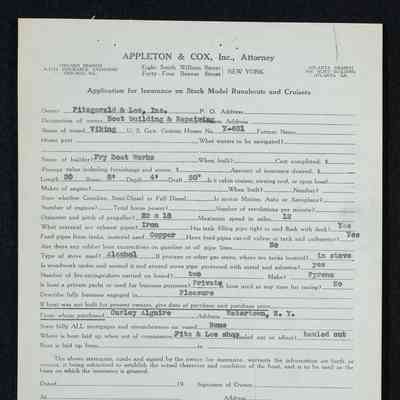 APPLETON & COX, Inc., Attorney
CHICAGO BRANCH
INSURANCE EXCHANGE
CHICAGO, ILL.
Eight South William Street
Forty-Four Beaver Street
NEW YORK
ATLANTA BRANCH
BUILDING
ATLANTA, GA.
Application for Insurance on Stock Model Runabouts and Cruisers
Owner Fitzgerald & Lee, Inc. P. O. Address
Occupation of owner Boat Building & Repairing
Name of vessel Viking U. S. Gov. Custom House No. Former Name
Home port What waters to be navigated?
Name of builder Fry Boat Works When built? Cost completed: $
Present value including furnishings and outfit: $ Amount of insurance desired: $
Length Beam 8' Depth 4' Draft Is it cabin cruiser, awning roof, or open boat?
Makes of engine? When built? Number?
State whether Gasoline, Semi-Diesel or Full Diesel Is motor Marine, Auto or Aeroplane?
Number of engines? Total horse power? Number of revolutions per minute?
Diameter and pitch of propeller? 22 x 18 Maximum speed in miles 12
What material are exhaust pipes? Iron Has tank filling pipe tight or and flush with deck? Yes
Feed pipes from tanks, material used? Copper Have feed pipes cut-off valves at tank and carburetor? Yes
Are there any rubber hose connections on gasoline or oil pipe lines No
Type of stove used? Alcohol If pressure or other gas stove, where are tanks located? in stove
Is woodwork under and around it and around stove pipe protected with metal and asbestos? yes
Number of fire extinguishers carried on board? two Make? Pyrene
Is boat a private yacht or used for business purposes? Private Is boat used at any time for racing? No
Describe fully business engaged in Pleasure
If boat was not built for present owners, give date of purchase and purchase price
From whom purchased Curley Alguire Address Watertown, N. Y.
State fully ALL mortgages and encumbrances on vessel None
Where is boat laid up when out of commission? Fitz & Lee shop hauled out or afloat? hauled out
Boat is laid up from to
The above statements, made and signed by the owner for insurance, warrants the information set forth as
correct, it being submitted to establish the actual character and condition of the boat, and is to be used as the
basis on which the insurance is granted.
Dated 19 Signature of Owner
At Address